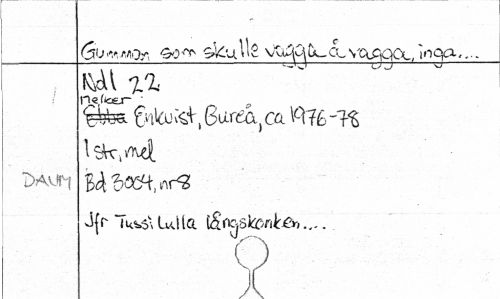 Gumman som skulle vagga å vagga, inga....
Ndl 22
Melker
Ebba Enkvist, Bureå, ca 1976-78
1 str, mel
DAUM Bd 3004, nr 8
Jfr Tussi Lulla långskonken....